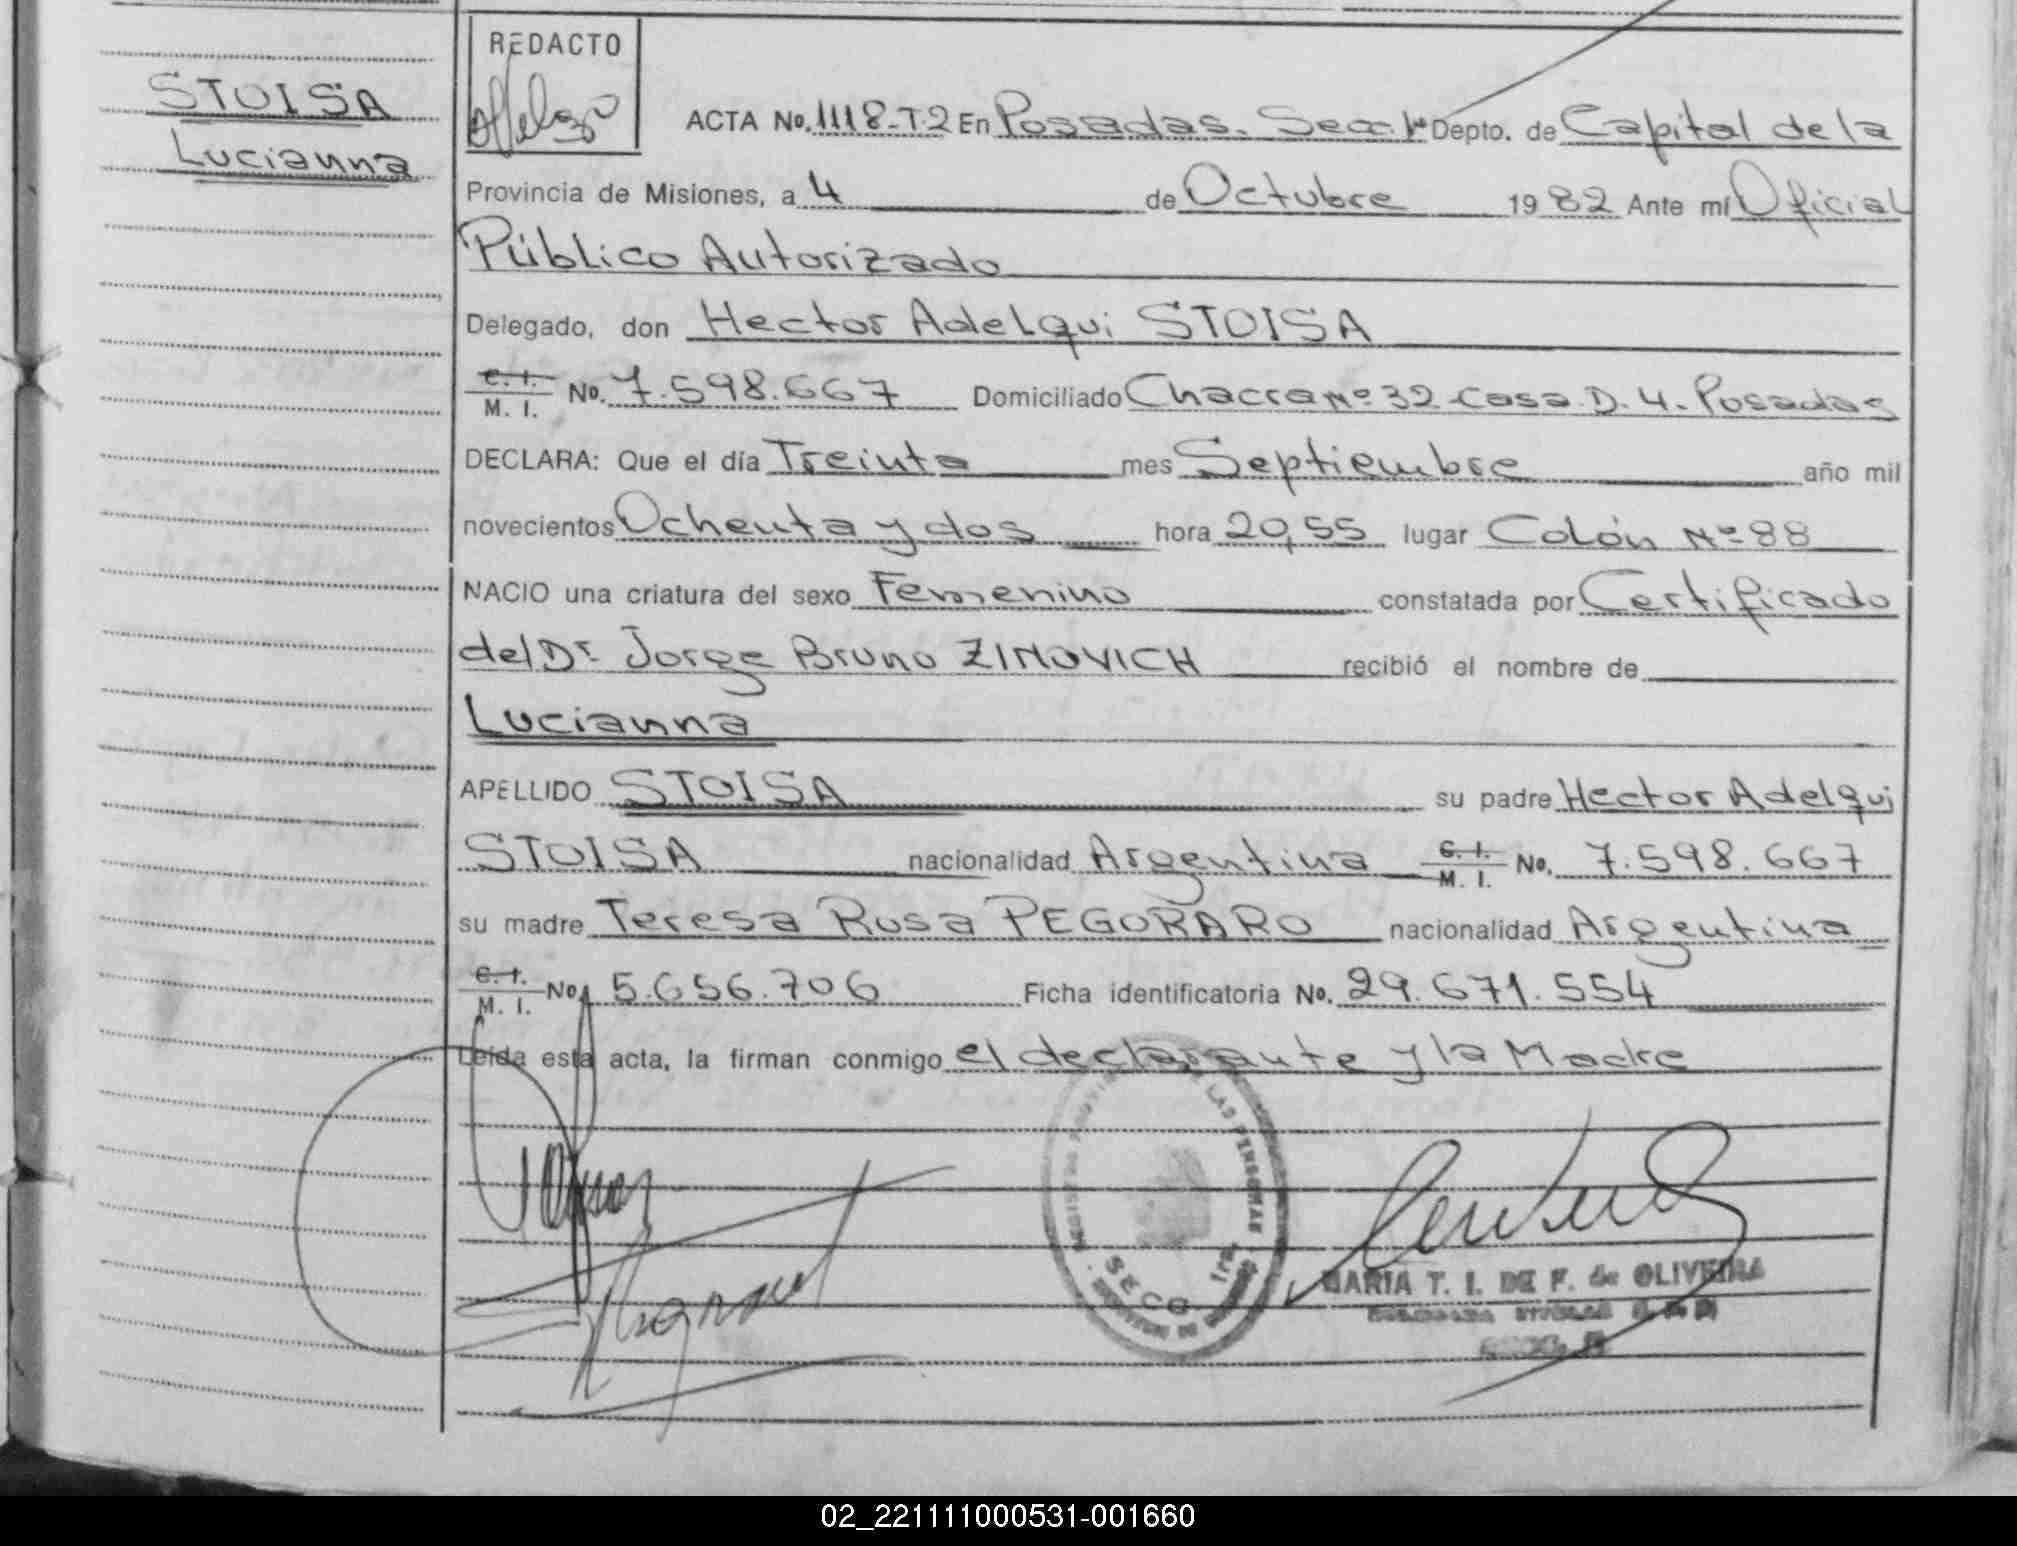 REDACTO
STOISA
Lucianna
ACTA No. 1118-T2 En Posadas. Secc. 1ª Depto. de Capital de la
Provincia de Misiones, a 4 de Octubre 1982 Ante mí Oficial
Público Autorizado
Delegado, don Hector Adelqui STOISA
C. I. M. I. No. 7.598.667 Domiciliado Chacra Nº 32 Casa D. 4. Posadas
DECLARA: Que el día Treinta mes Septiembre año mil
novecientos Ochenta y dos hora 20,55 lugar Colón Nº 88
NACIO una criatura del sexo Femenino constatada por Certificado
del Dr. Jorge Bruno ZINOVICH recibió el nombre de
Lucianna
APELLIDO STOISA su padre Hector Adelqui
STOISA nacionalidad Argentina C. I. M. I. No. 7.598.667
su madre Teresa Rosa PEGORARO nacionalidad Argentina
C. I. M. I. No. 5.656.706 Ficha identificatoria No. 29.671.554
Leída esta acta, la firman conmigo el declarante y la Madre
LAS PERSONAS
SECC. 1ra.
MARIA T. I. DE F. de OLIVEIRA
02_221111000531-001660